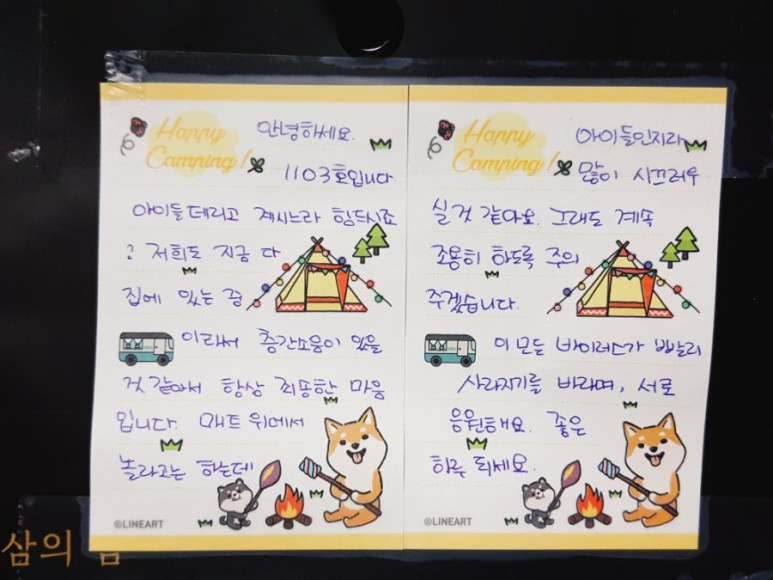 Happy
Camping!
안녕하세요.
1103호입니다
아이들 데리고 계시느라 힘드시죠
? 저희도 지금 다
집에 있는 중
이라서 층간소음이 있을
것 같아서 항상 죄송한 마음
입니다. 매트 위에서
놀라고는 하는데
©LINEART
Happy
Camping!
아이들인지라
많이 시끄러우
실 것 같아요. 그래도 계속
조용히 하도록 주의
주겠습니다.
이 모든 바이러스가 빨리
사라지기를 바라며, 서로
응원해요. 좋은
하루 되세요.
©LINEART
삼의